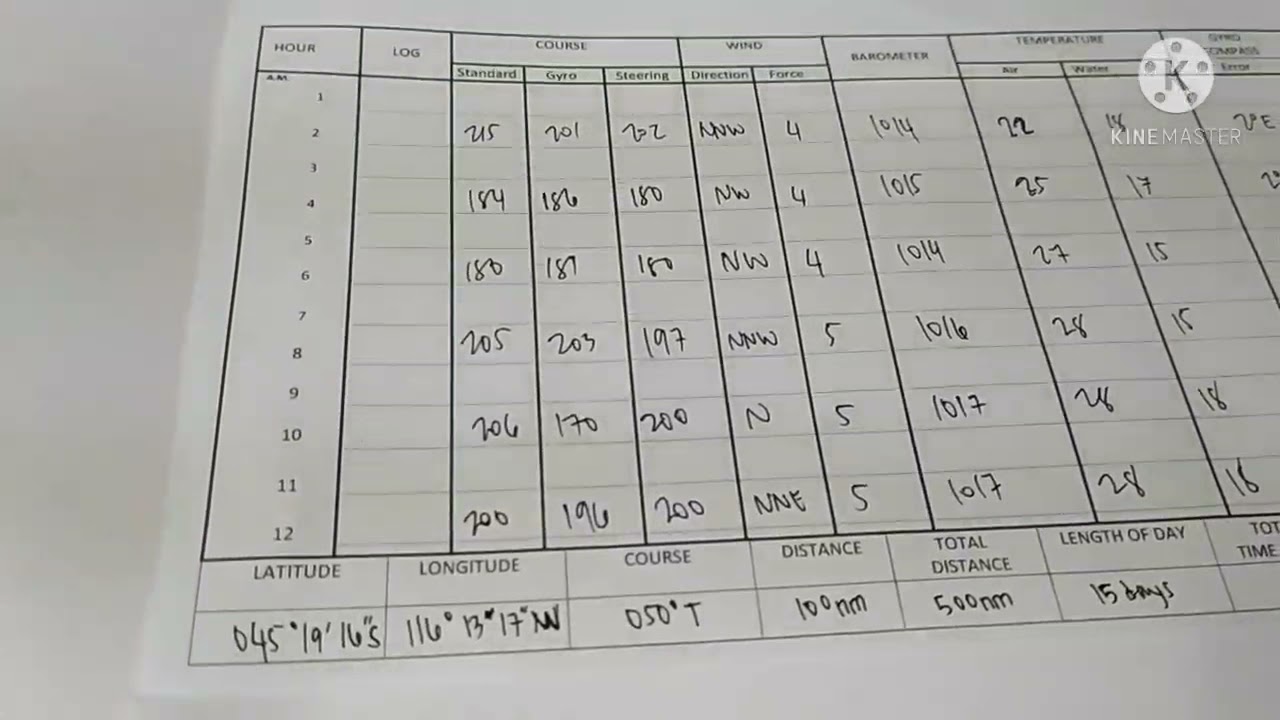 HOUR LOG COURSE WIND BAROMETER TEMPERATURE GYRO COMPASS
A.M. Standard Gyro Steering Direction Force Air Water Error
1
2 215 201 202 NNW 4 1014 22 18 2°E
3
4 184 186 180 NW 4 1015 25 17
5
6 180 187 180 NW 4 1014 27 15
7
8 205 203 197 NNW 5 1016 28 15
9
10 206 170 200 N 5 1017 28 18
11
12 200 196 200 NNE 5 1017 28 16
LATITUDE LONGITUDE COURSE DISTANCE TOTAL DISTANCE LENGTH OF DAY TOT TIME
045°19'16"S 116° 13" 17" W 050°T 100nm 500nm 15 days
KINEMASTER